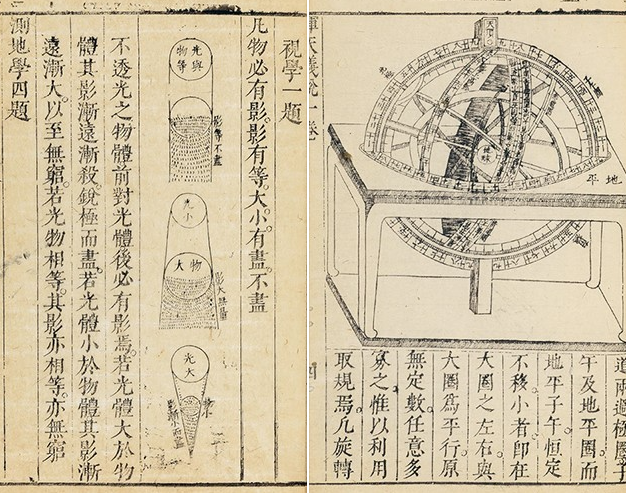 視學一題
凡物必有影。影有等大小。有盡不盡
光與物等
影等不盡
光小
物大
影大無盡
光大
不透光之物體前對光體後必有影焉。若光體大於物
體其影漸遠漸殺。銳極而盡。若光體小於物體其影漸
遠漸大。以至無窮。若光物相等。其影亦相等。亦無窮
測地學四題
天頂
地平
地球
道兩過極圈子
午及地平圈而
地平子午恒定
不移小者即在
大圈之左右與
大圈為平行原
無定數任意多
寡之惟以利用
取規焉凡旋轉
渾天儀說一卷